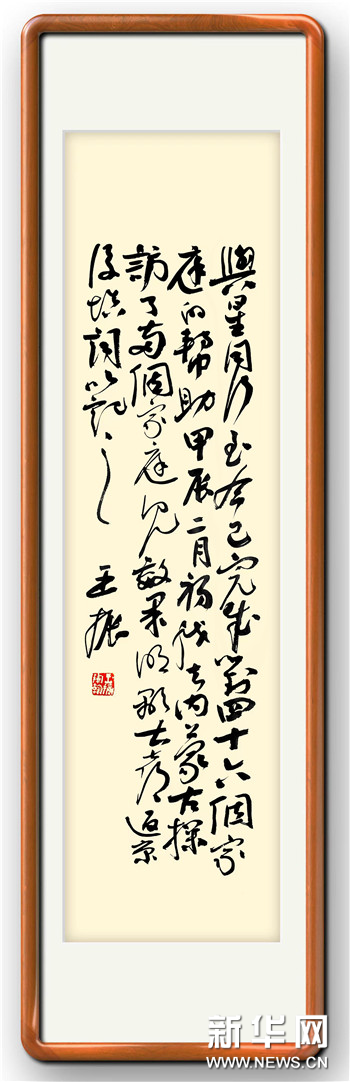 與星同行至今已完成對四十六個家
庭的幫助甲辰二月初我去内蒙古探
訪了两個家庭見效果明顯大喜返京
後填詞以記之
王振
新华网
WWW.NEWS.CN